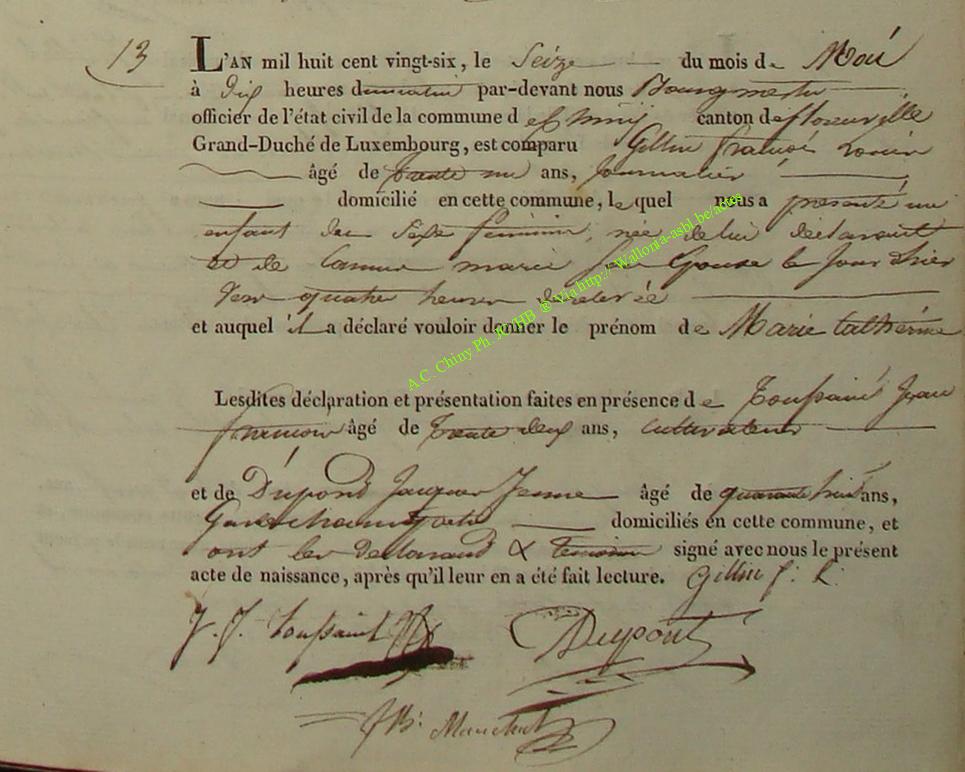 13
L'AN mil huit cent vingt-six, le Seize du mois de Mai
à dix heures du matin par-devant nous Bourgmestre
officier de l'état civil de la commune d canton de florenville
Grand-Duché de Luxembourg, est comparu Gillin francois Louis
âgé de trente un ans, Journalier
domicilié en cette commune, lequel nous a présenté un
enfant du Sexe féminin, née de lui déclarant
et de marie Son Epouse le Jour d'hier
vers quatre heures de relevée
et auquel il a déclaré vouloir donner le prénom de Marie Catherine
Lesdites déclaration et présentation faites en présence de Toussaint Jean
francois âgé de trente deux ans, cultivateur
et de Dupond Jacques Jenne âgé de quarante huit ans,
Garde champetre domiciliés en cette commune, et
ont les declarand & temoins signé avec nous le présent
acte de naissance, après qu'il leur en a été fait lecture. Gillin f: L:
J. F. Toussaint
Dupont
A.C. Chiny Ph. JC/HB ® Via http://Wallonia-asbl.be/actes